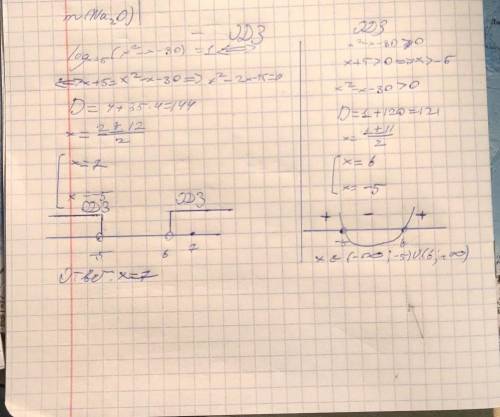 m(Na₂O)
ОДЗ
log x+5 (x²-x-30) = 1 <=>
<=> x+5 = x²-x-30 => x²-2x-35=0
D = 4+35·4=144
x = 2±12 / 2
x=7
x=-5
ОДЗ ОДЗ
-5 6 7
Ответ: x=7
ОДЗ
x²-x-30>0
x+5>0 => x>-5
x²-x-30>0
D=1+120=121
x= 1±11 / 2
x=6
x=-5
+ - +
-5 6
x ∈ (-∞; -5)∪(6; +∞)